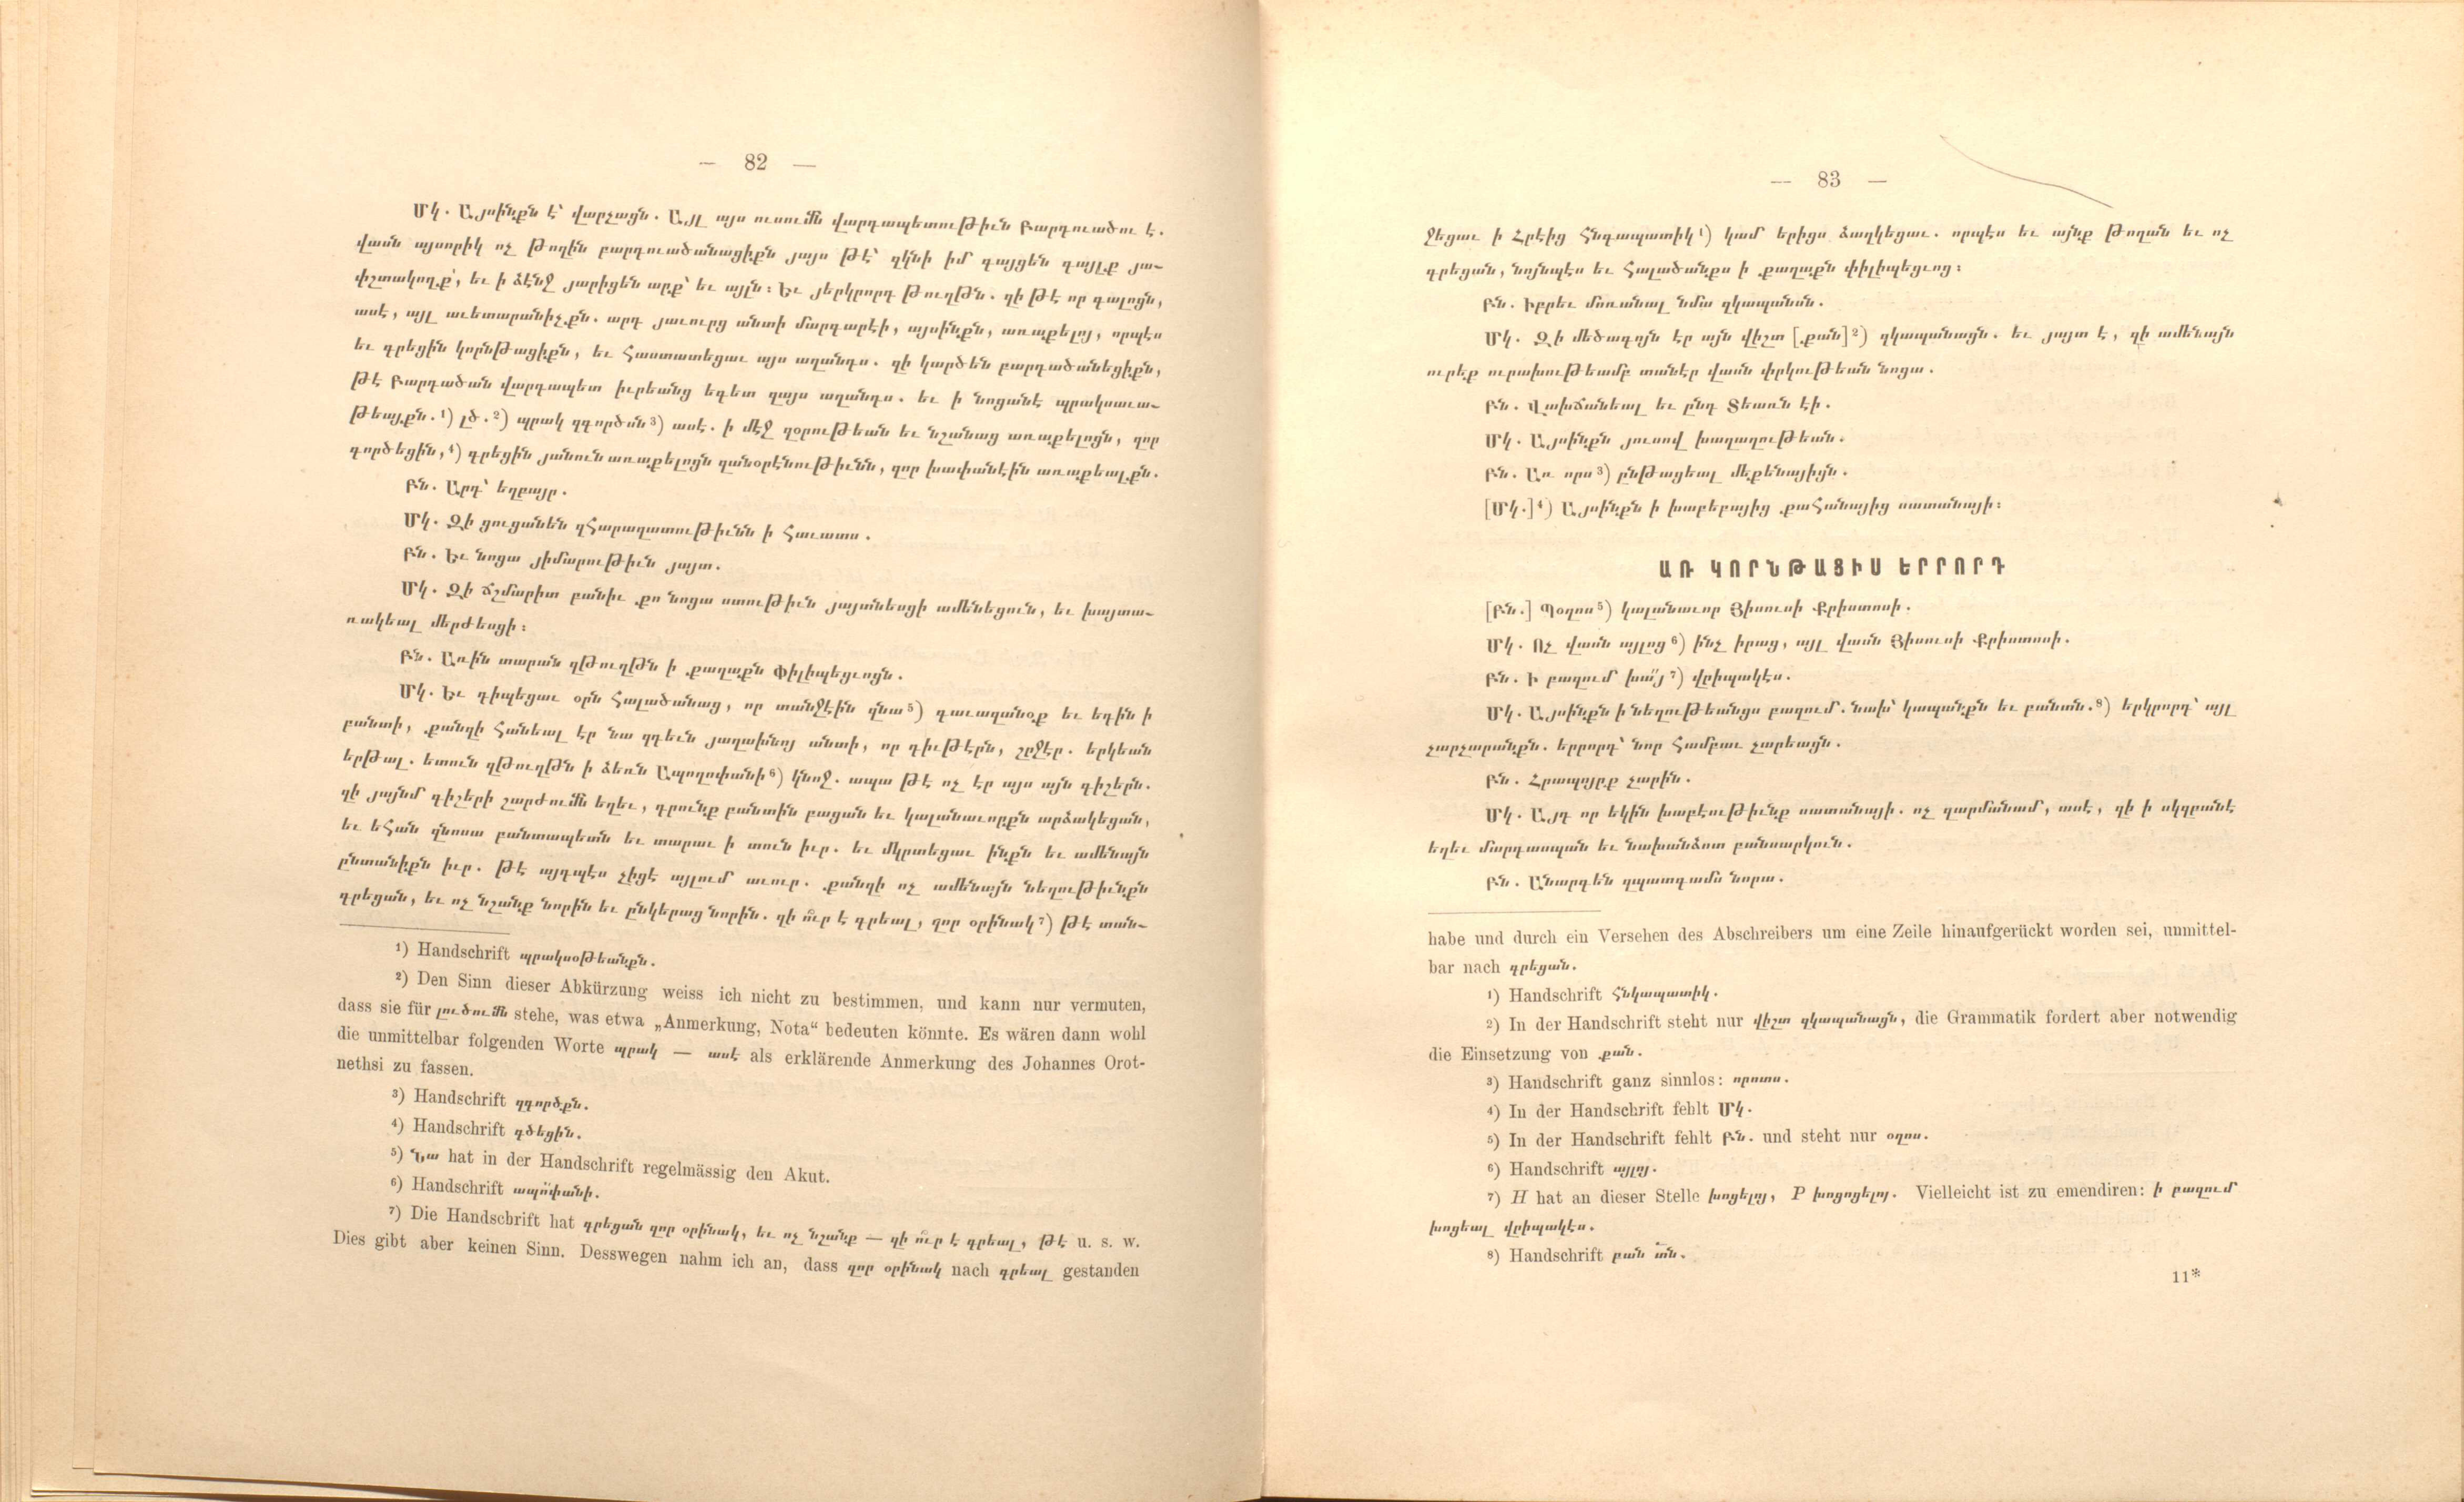 — 82 —
Մկ. Այսինքն է՝ վարչացն. Այլ այս ուսումն վարդապետութիւն Բարդուածու է.
վասն այսորիկ ոչ թողին բարդուածանացիքն յայս թէ՝ զկնի իմ գայցեն գայլք յա-
փշտակողք՝, եւ ի ձէնջ յարիցեն արք՝ եւ այլն: Եւ յերկրորդ թուղթն. զի թէ որ գալոցն,
ասէ, այլ աւետարանիչքն. արդ յաւուրց անտի մարդարէի, այսինքն, առաքելոյ, որպէս
եւ գրեցին կորնթացիքն, եւ հաստատեցաւ այս աղանդս. զի կարծեն բարդածանեցիքն,
թէ Բարդածան վարդապետ իւրեանց եգետ զայս աղանդս. եւ ի նոցանէ պրակսաւա-
թեայքն.¹) լծ.²) պրակ զգործսն³) ասէ. ի մէջ զօրութեան եւ նշանաց առաքելոցն, զոր
գործեցին,⁴) գրեցին յանուն առաքելոցն զանօրէնութիւնն, զոր խափանէին առաքեալքն.
Բն. Արդ՝ եղբայր.
Մկ. Զի ցուցանեն զհարազատութիւնն ի հաւատս.
Բն. Եւ նոցա յիմարութիւն յայտ.
Մկ. Զի ճշմարիտ բանիւ քո նոցա ստութիւն յայտնեսցի ամենեցուն, եւ խայտա-
ռակեալ մերժեսցի:
Բն. Առին տարան զթուղթն ի քաղաքն Փիլիպեցւոցն.
Մկ. Եւ դիպեցաւ օրն հալածանաց, որ տանջէին զնա⁵) գաւազանօք եւ եդին ի
բանտի, քանզի հանեալ էր նա զդեւն յաղախնոյ անտի, որ դիւթէրն, շրջէր. երկեան
երթալ. ետուն զթուղթն ի ձեռն Ապողոփանի⁶) կնոջ. ապա թէ ոչ էր այս այն գիշերն.
զի յայնմ գիշերի շարժումն եղեւ, դրունք բանտին բացան եւ կալանաւորքն արձակեցան,
եւ եհան զնոսա բանտապետն եւ տարաւ ի տուն իւր. եւ մկրտեցաւ ինքն եւ ամենայն
ընտանիքն իւր. թէ այդպէս չիցէ այլում աւուր. քանզի ոչ ամենայն նեղութիւնքն
գրեցան, եւ ոչ նշանք նորին եւ ընկերաց նորին. զի ո՞ւր է գրեալ, զոր օրինակ⁷) թէ տան-
¹) Handschrift պրակսօթեանքն.
²) Den Sinn dieser Abkürzung weiss ich nicht zu bestimmen, und kann nur vermuten,
dass sie für լուծումն stehe, was etwa „Anmerkung, Nota“ bedeuten könnte. Es wären dann wohl
die unmittelbar folgenden Worte պրակ — ասէ als erklärende Anmerkung des Johannes Orot-
nethsi zu fassen.
³) Handschrift զգործքն.
⁴) Handschrift գծեցին.
⁵) Նա hat in der Handschrift regelmässig den Akut.
⁶) Handschrift
⁷) Die Handschrift hat գրեցան զոր օրինակ, եւ ոչ նշանք — զի ո՞ւր է գրեալ, թէ u. s. w.
Dies gibt aber keinen Sinn. Desswegen nahm ich an, dass զոր օրինակ nach գրեալ gestanden
— 83 —
ջեցաւ ի Հրէից հնգապատիկ¹) կամ երիցս ձաղկեցաւ. որպէս եւ այնք թողան եւ ոչ
գրեցան, նոյնպէս եւ հալածանքս ի քաղաքն փիլիպեցւոց:
Բն. Իբրեւ մոռանալ նմա զկապանսն.
Մկ. Զի մեծագոյն էր այն վիշտ [քան]²) զկապանացն. եւ յայտ է, զի ամենայն
ուրեք ուրախութեամբ տանէր վասն փրկութեան նոցա.
Բն. Վախճանեալ եւ ընդ Տեառն էի.
Մկ. Այսինքն յուսով խաղաղութեան.
Բն. Առ որս³) ընթացեալ մեքենայիցն.
[Մկ.]⁴) Այսինքն ի խաբեբայից քահանայից սատանայի:
ԱՌ ԿՈՐՆԹԱՑԻՍ ԵՐՐՈՐԴ
[Բն.] Պօղոս⁵) կալանաւոր Յիսուսի Քրիստոսի.
Մկ. Ոչ վասն այլոց⁶) ինչ իրաց, այլ վասն Յիսուսի Քրիստոսի.
Բն. Ի բազում ⁷) վրիպակէս.
Մկ. Այսինքն ի նեղութեանցս բազում. նախ՝ կապանքն եւ բանտն.⁸) երկրորդ՝ այլ
չարչարանքն. երրորդ՝ նոր համբաւ չարեացն.
Բն. Հրապոյրք չարին.
Մկ. Այդ որ եկին խաբէութիւնք սատանայի. ոչ զարմանամ, ասէ, զի ի սկզբանէ
եղեւ մարդասպան եւ նախանձոտ բանսարկուն.
Բն. Անարգեն զպատգամս նորա.
habe und durch ein Versehen des Abschreibers um eine Zeile hinaufgerückt worden sei, unmittel-
bar nach գրեցան.
¹) Handschrift հնկապատիկ.
²) In der Handschrift steht nur վիշտ զկապանացն, die Grammatik fordert aber notwendig
die Einsetzung von քան.
³) Handschrift ganz sinnlos: որոտս.
⁴) In der Handschrift fehlt Մկ.
⁵) In der Handschrift fehlt Բն. und steht nur օղոս.
⁶) Handschrift այլոյ.
⁷) H hat an dieser Stelle խոցելոյ, P խոցոցելոյ. Vielleicht ist zu emendiren: ի բազում
խոցեալ վրիպակէս.
⁸) Handschrift բան
11*